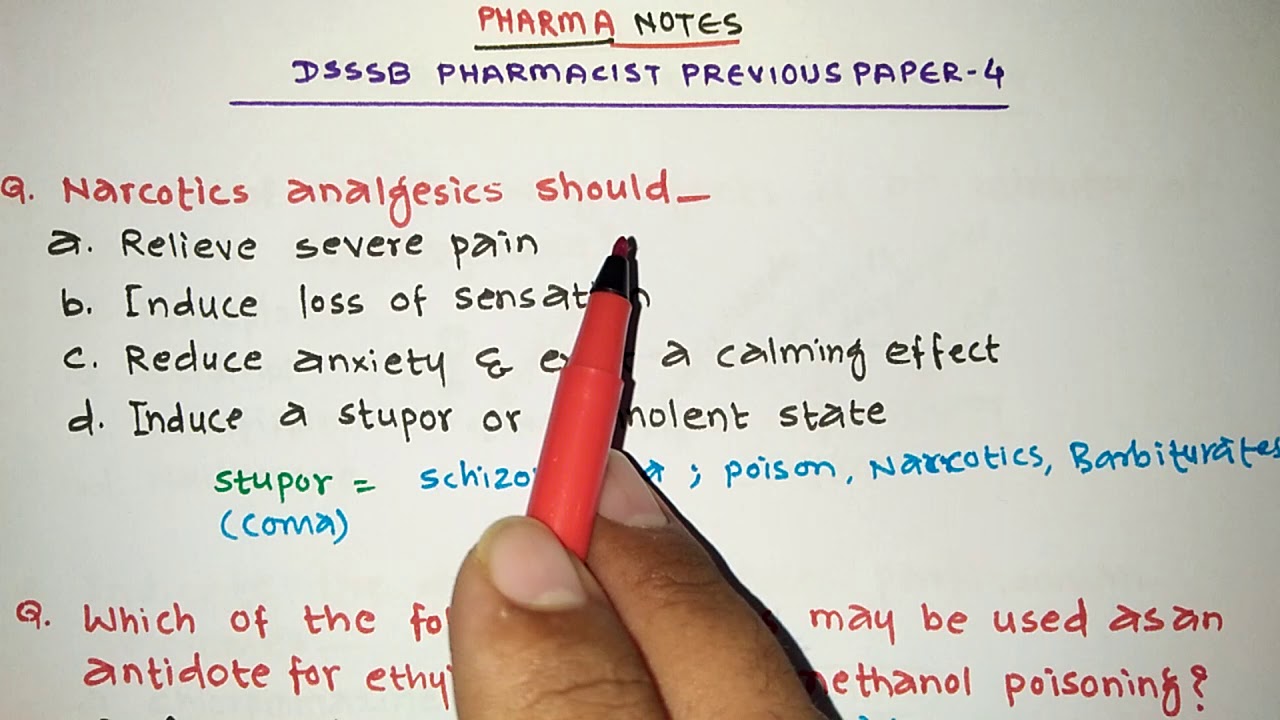 PHARMA NOTES
DSSSB PHARMACIST PREVIOUS PAPER-4
Q. Narcotics analgesics should_
a. Relieve severe pain
b. Induce loss of
c. Reduce anxiety & a calming effect
d. Induce a stupor or state
stupor = ; poison, Narcotics, Barbiturates
(coma)
Q. Which of the may be used as an
antidote for methanol poisoning?